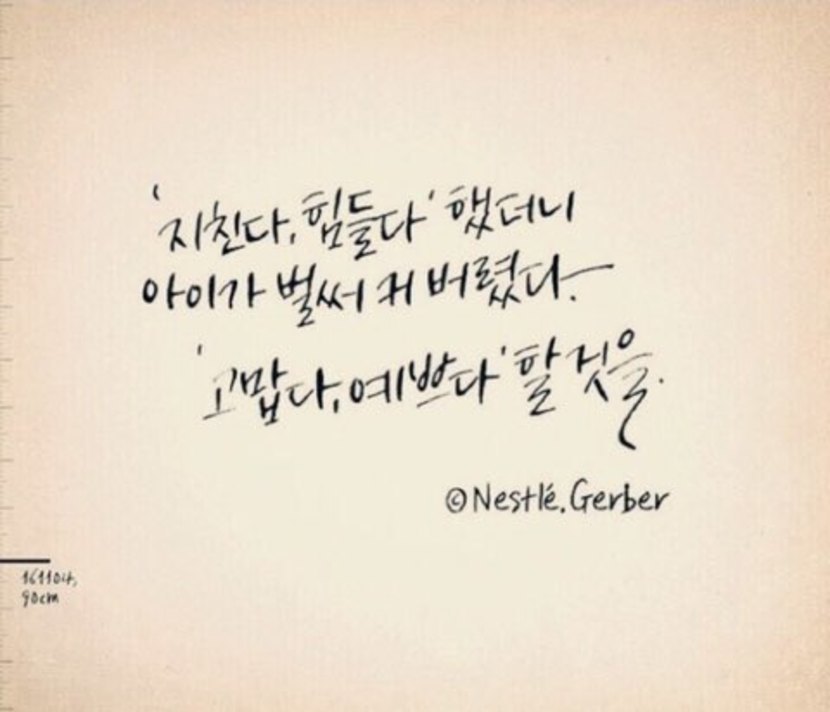 '지친다, 힘들다' 했더니
아이가 벌써 커 버렸다.
'고맙다, 예쁘다' 할 것을.
©Nestlé.Gerber
161104,
90cm